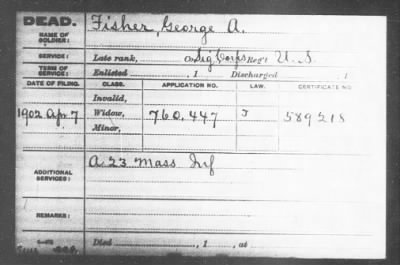 DEAD.
NAME OF SOLDIER: Fisher, George A.
SERVICE: Late rank, Co. Sig Corps Reg't U. S.
TERM OF SERVICE: Enlisted , 1 Discharged , 1
DATE OF FILING. CLASS. APPLICATION NO. LAW. CERTIFICATE NO.
Invalid,
1902 Apr 7 Widow, 760.447 589218
Minor,
ADDITIONAL SERVICES: A. 23 Mass Inf
REMARKS:
Died , 1 , at